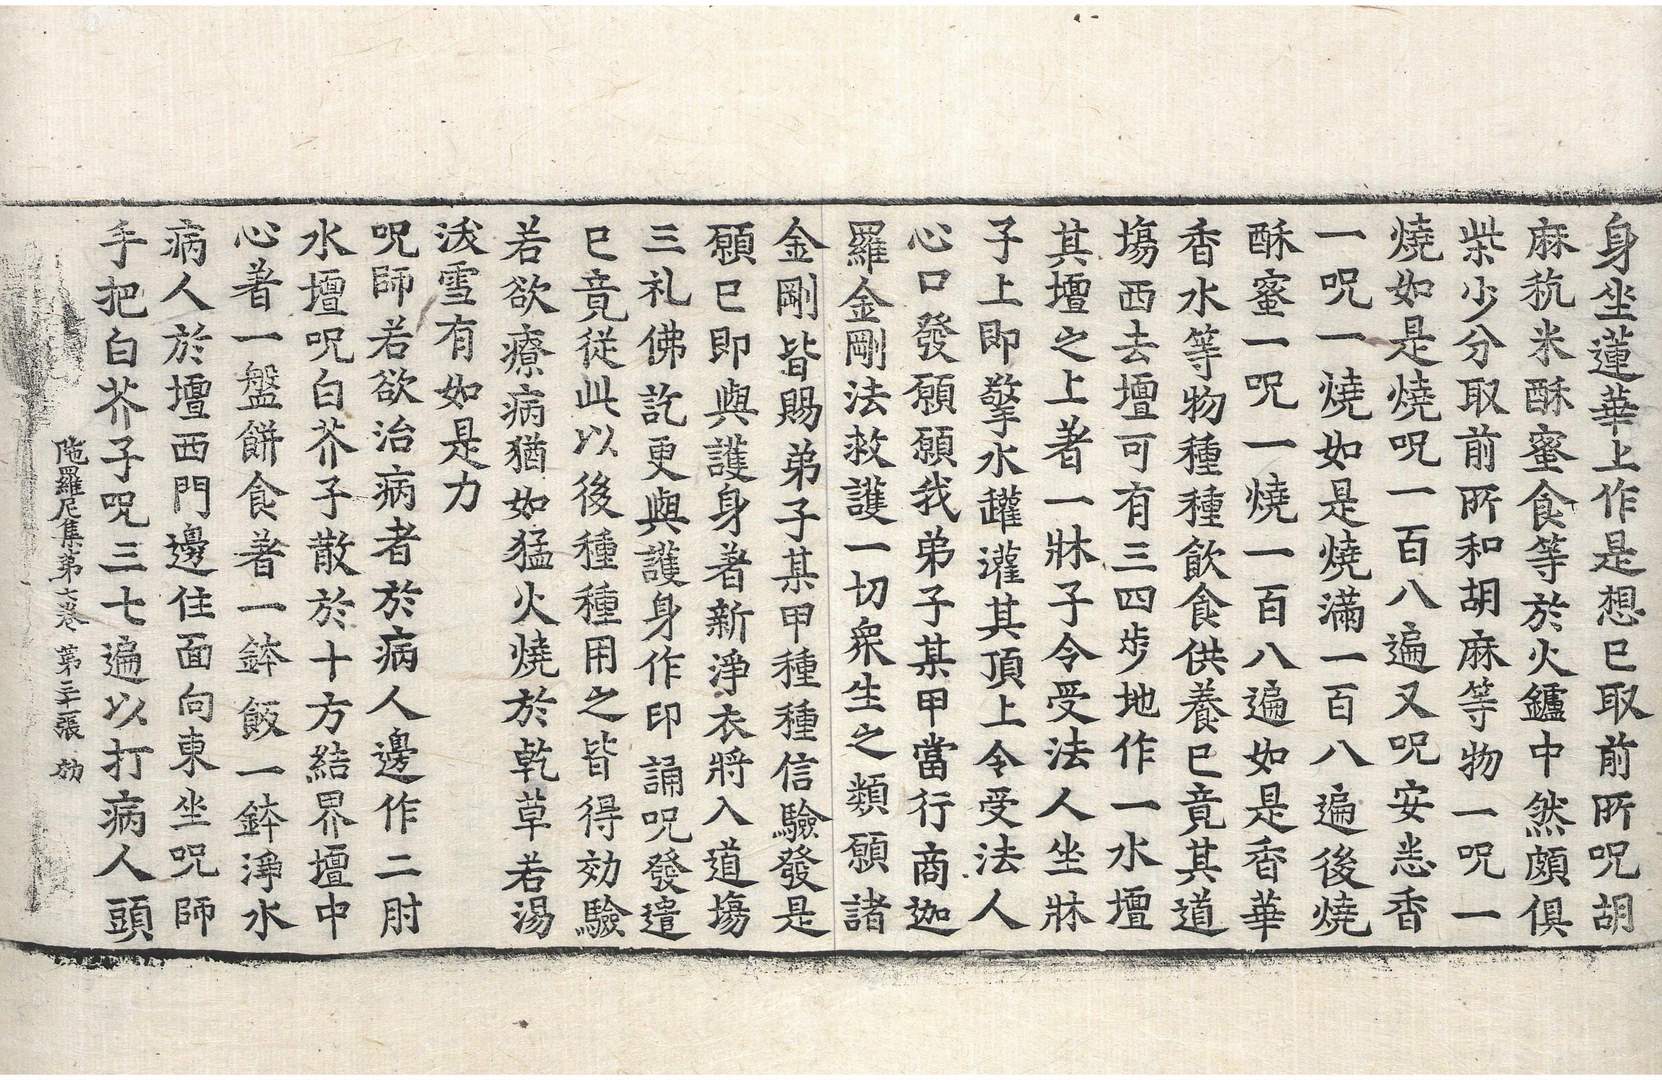 身坐蓮華上作是想已取前所呪胡
麻秔米酥蜜食等於火鑪中然頗俱
柴少分取前所和胡麻等物一呪一
燒如是燒呪一百八遍又呪安悉香
一呪一燒如是燒滿一百八遍後燒
酥蜜一呪一燒一百八遍如是香華
香水等物種種飲食供養已竟其道
塲西去壇可有三四步地作一水壇
其壇之上著一牀子令受法人坐牀
子上即擎水罐灌其頂上令受法人
心口發願願我弟子某甲當行商迦
羅金剛法救護一切衆生之類願諸
金剛皆賜弟子某甲種種信驗發是
願已即與護身著新淨衣將入道塲
三礼佛訖更與護身作印誦呪發遣
已竟從此以後種種用之皆得効驗
若欲療病猶如猛火燒於乾草若湯
沃雪有如是力
呪師若欲治病者於病人邊作二肘
水壇呪白芥子散於十方結界壇中
心著一盤餅食著一鉢飯一鉢淨水
病人於壇西門邊住面向東坐呪師
手把白芥子呪三七遍以打病人頭
陁羅尼集第七卷 第二十張 効